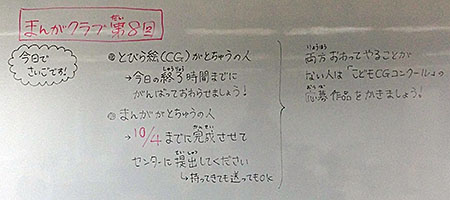 まんがクラブ 第8回
今日で
さいごです!
◎とびら絵(CG)がとちゅうの人
→今日の終了時間までに
がんばっておわらせましょう!
◎まんががとちゅうの人
→10/4までに完成させて
センターに提出してください
↳持ってきても送ってもOK
両方おわってやることが
ない人は「こどもCGコンクール」の
応募作品をかきましょう!